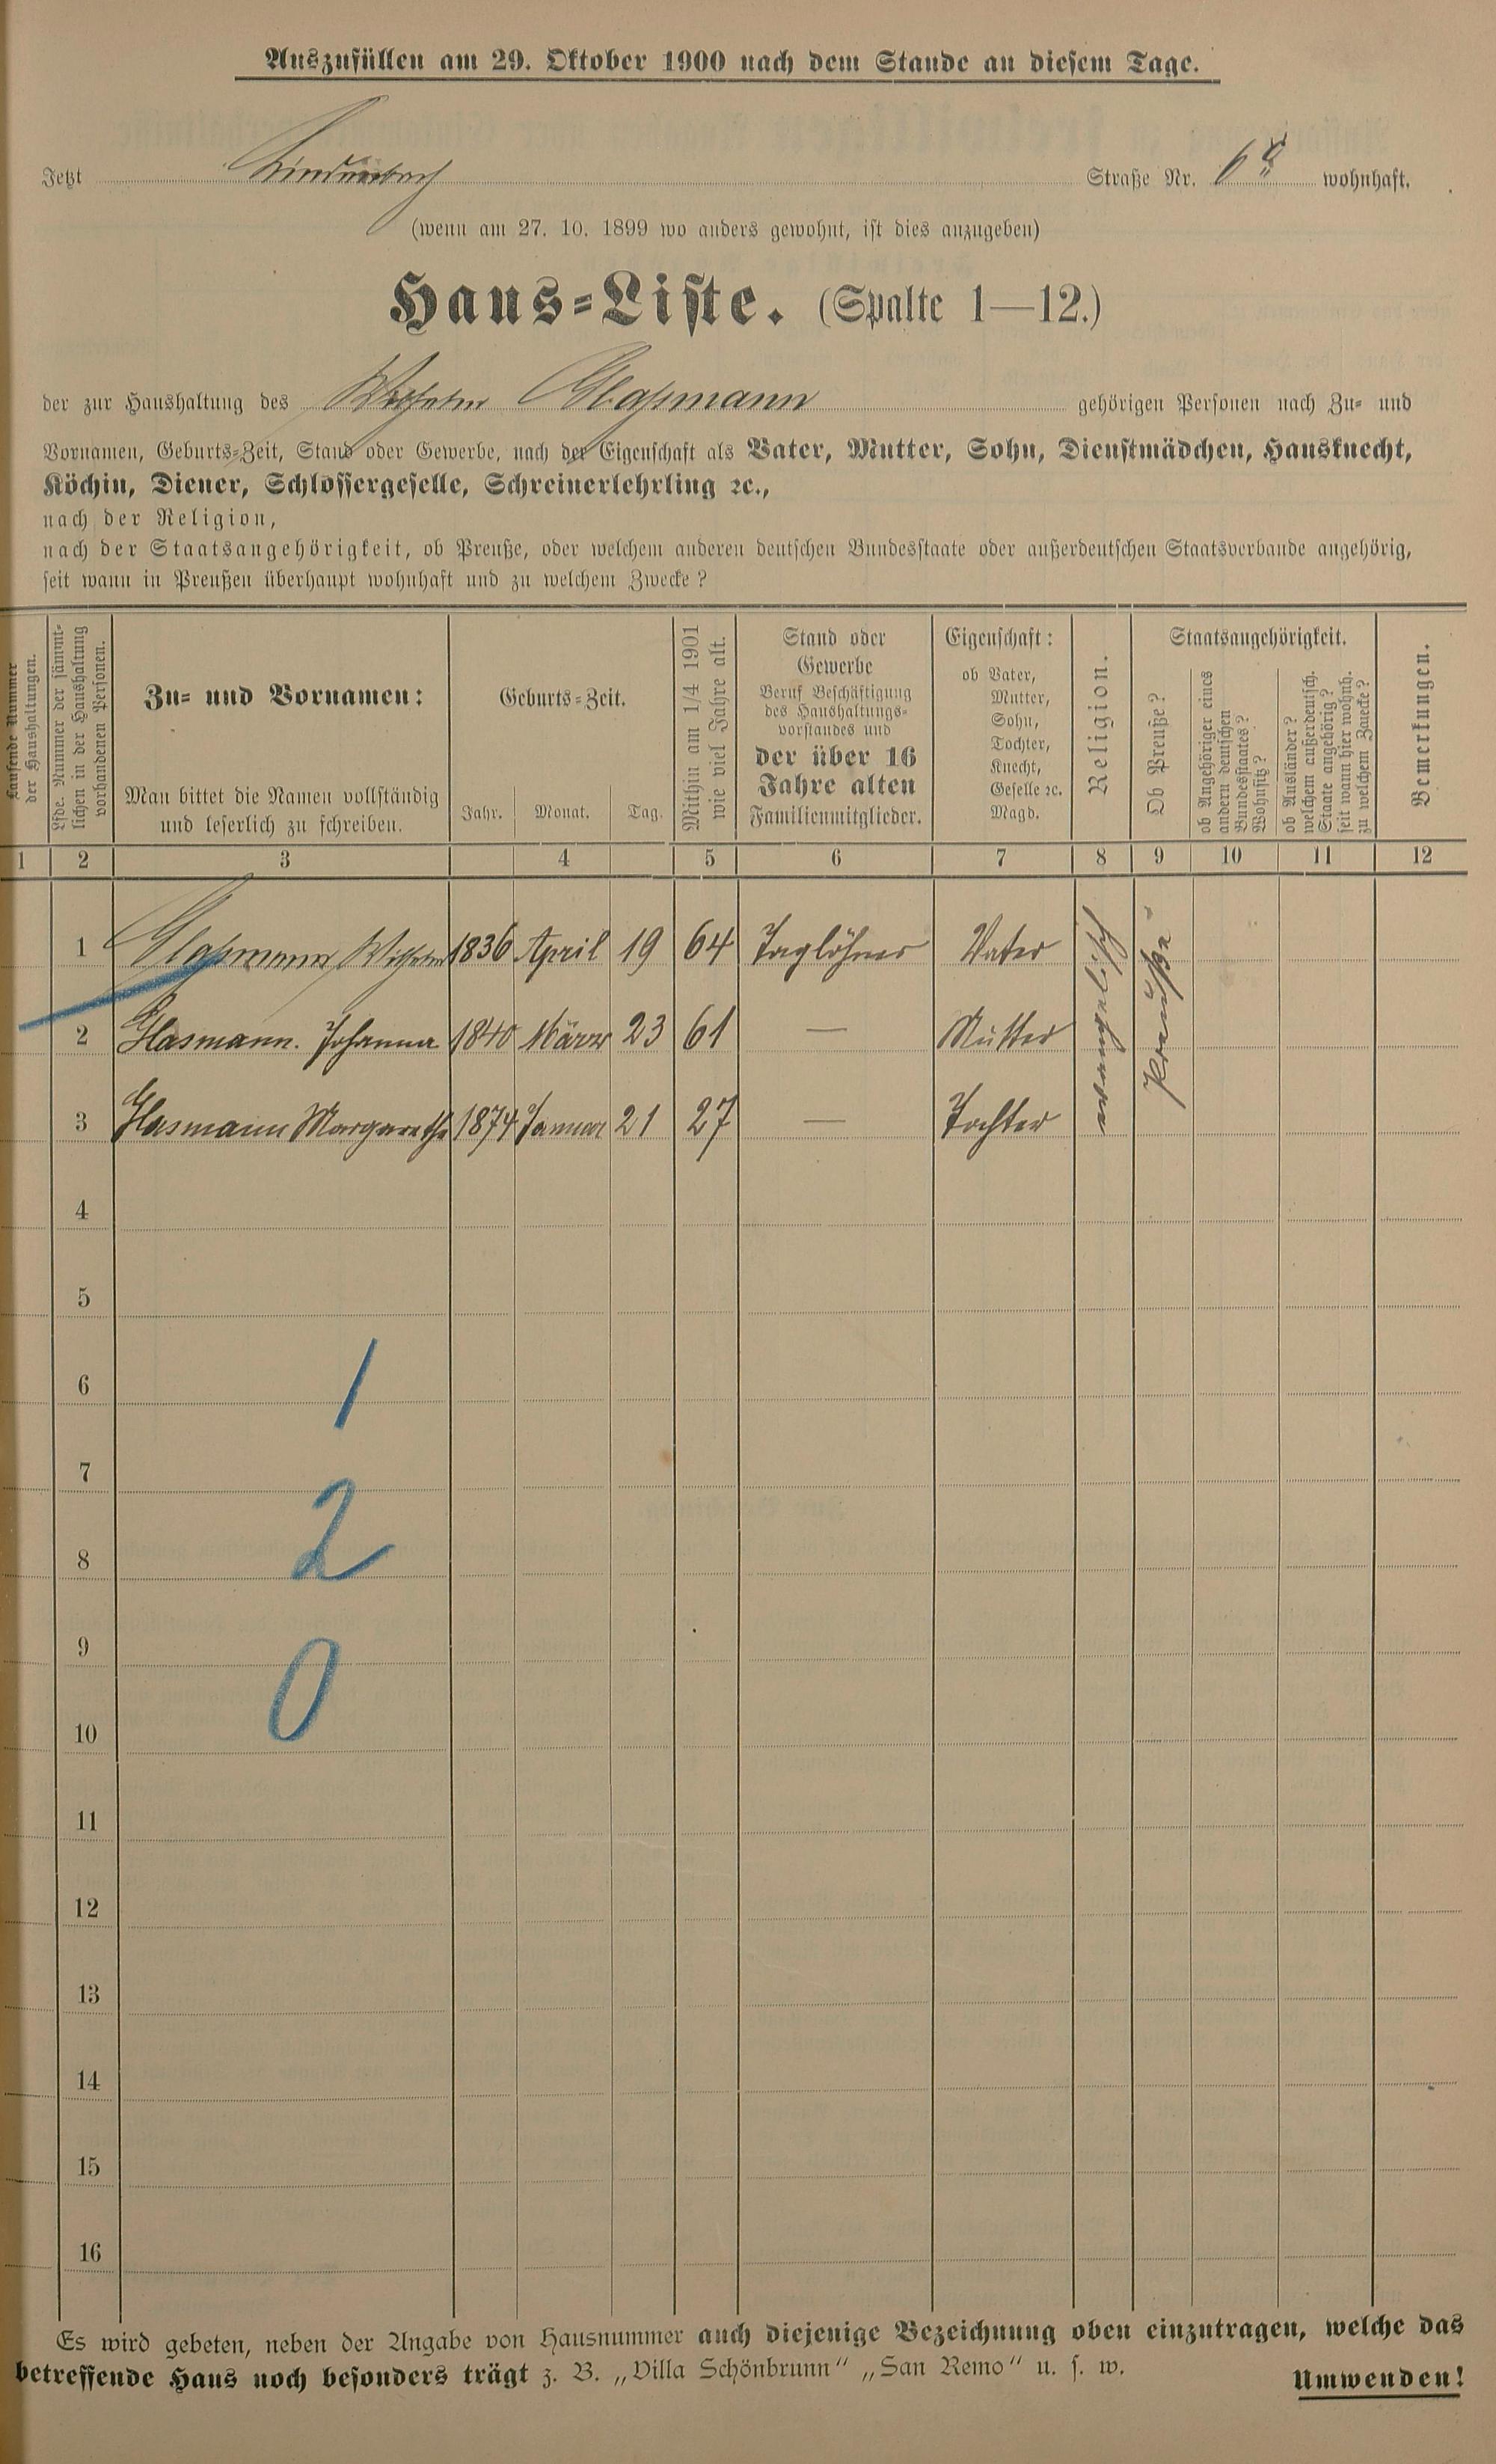 Auszufüllen am 29. Oktober 1900 nach dem Stande an diesem Tage.
Jetzt Lindenbach Straße Nr. 6a wohnhaft.
(wenn am 27. 10. 1899 wo anders gewohnt, ist dies anzugeben)
Haus-Liste. (Spalte 1—12.)
der zur Haushaltung des Wilhelm Glaßmann gehörigen Personen nach Zu- und
Vornamen, Geburts-Zeit, Stand oder Gewerbe, nach der Eigenschaft als Vater, Mutter, Sohn, Dienstmädchen, Hausknecht,
Köchin, Diener, Schlossergeselle, Schreinerlehrling ꝛc.,
nach der Religion,
nach der Staatsangehörigkeit, ob Preuße, oder welchem anderen deutschen Bundesstaate oder außerdeutschen Staatsverbande angehörig,
seit wann in Preußen überhaupt wohnhaft und zu welchem Zwecke?
Laufende Nummer
der Haushaltungen.
Lfde. Nummer der sämmt-
lichen in der Haushaltung
vorhandenen Personen.
Zu- und Vornamen:
Man bittet die Namen vollständig
und leserlich zu schreiben.
Geburts-Zeit.
Jahr. Monat. Tag.
Mithin am 1/4 1901
wie viel Jahre alt.
Stand oder
Gewerbe
Beruf Beschäftigung
des Haushaltungs-
vorstandes und
der über 16
Jahre alten
Familienmitglieder.
Eigenschaft:
ob Vater,
Mutter,
Sohn,
Tochter,
Knecht,
Geselle ꝛc.
Magd.
Religion.
Staatsangehörigkeit.
Ob Preuße?
ob Angehöriger eines
andern deutschen
Bundesstaates?
Wohnsitz?
ob Ausländer?
welchem außerdeutsch.
Staate angehörig?
seit wann hier wohnh.
zu welchem Zwecke?
Bemerkungen.
1 2 3 4 5 6 7 8 9 10 11 12
1 Glaßmann, Wilhelm 1836 April 19 64 Taglöhner Vater
2 Glasmann. Johanna 1840 März 23 61 — Mutter
3 Glasmann Margarethe 1874 Januar 21 27 — Tochter
evangelisch
Preuße
4
5
6
1
7
8
2
9
10
0
11
12
13
14
15
16
Es wird gebeten, neben der Angabe von Hausnummer auch diejenige Bezeichnung oben einzutragen, welche das
betreffende Haus noch besonders trägt z. B. „Villa Schönbrunn“ „San Remo“ u. s. w.
Umwenden!